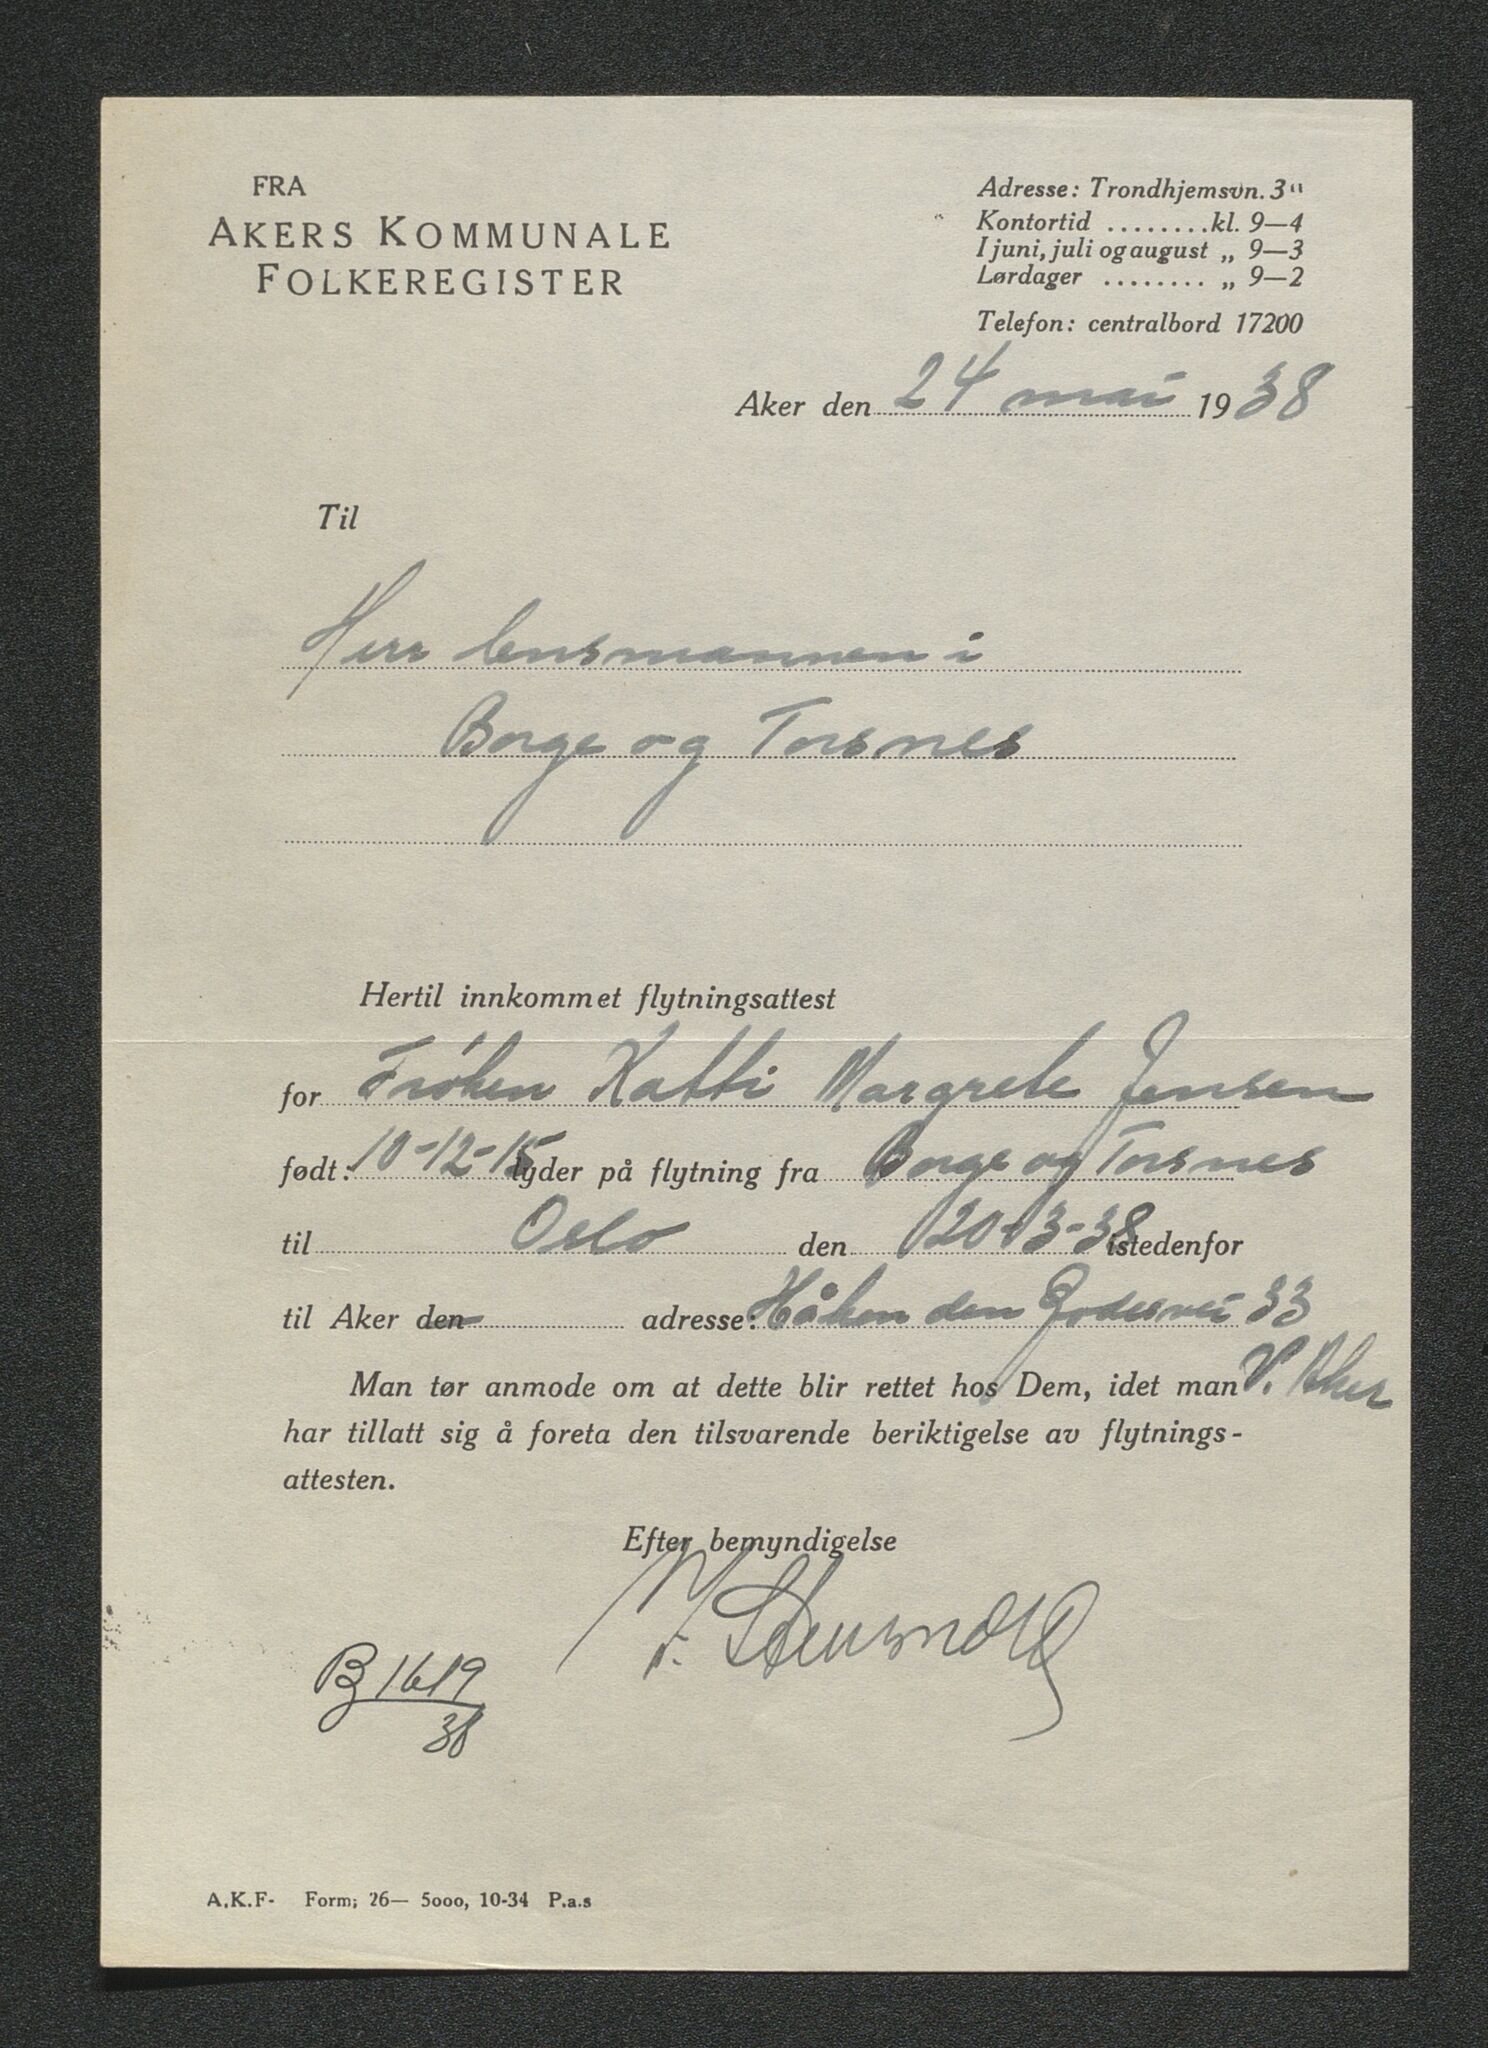 FRA
AKERS KOMMUNALE
FOLKEREGISTER
Adresse: Trondhjemsvn. 3"
Kontortid ........kl. 9—4
I juni, juli og august „ 9—3
Lørdager ........ „ 9—2
Telefon: centralbord 17200
Aker den 24 mai 1938
Til
Herr lensmannen i
Borge og Torsnes
Hertil innkommet flytningsattest
for Frøken Katti Margrete Jensen
født: 10-12-15 lyder på flytning fra Borge og Torsnes
til Oslo den 20-3-38 istedenfor
til Aker den adresse: Håkon den Godesvei 33
V. Aker
Man tør anmode om at dette blir rettet hos Dem, idet man
har tillatt sig å foreta den tilsvarende beriktigelse av flytnings-
attesten.
Efter bemyndigelse
B 1619
38
A.K.F- Form; 26— 5000, 10-34 P.a.s